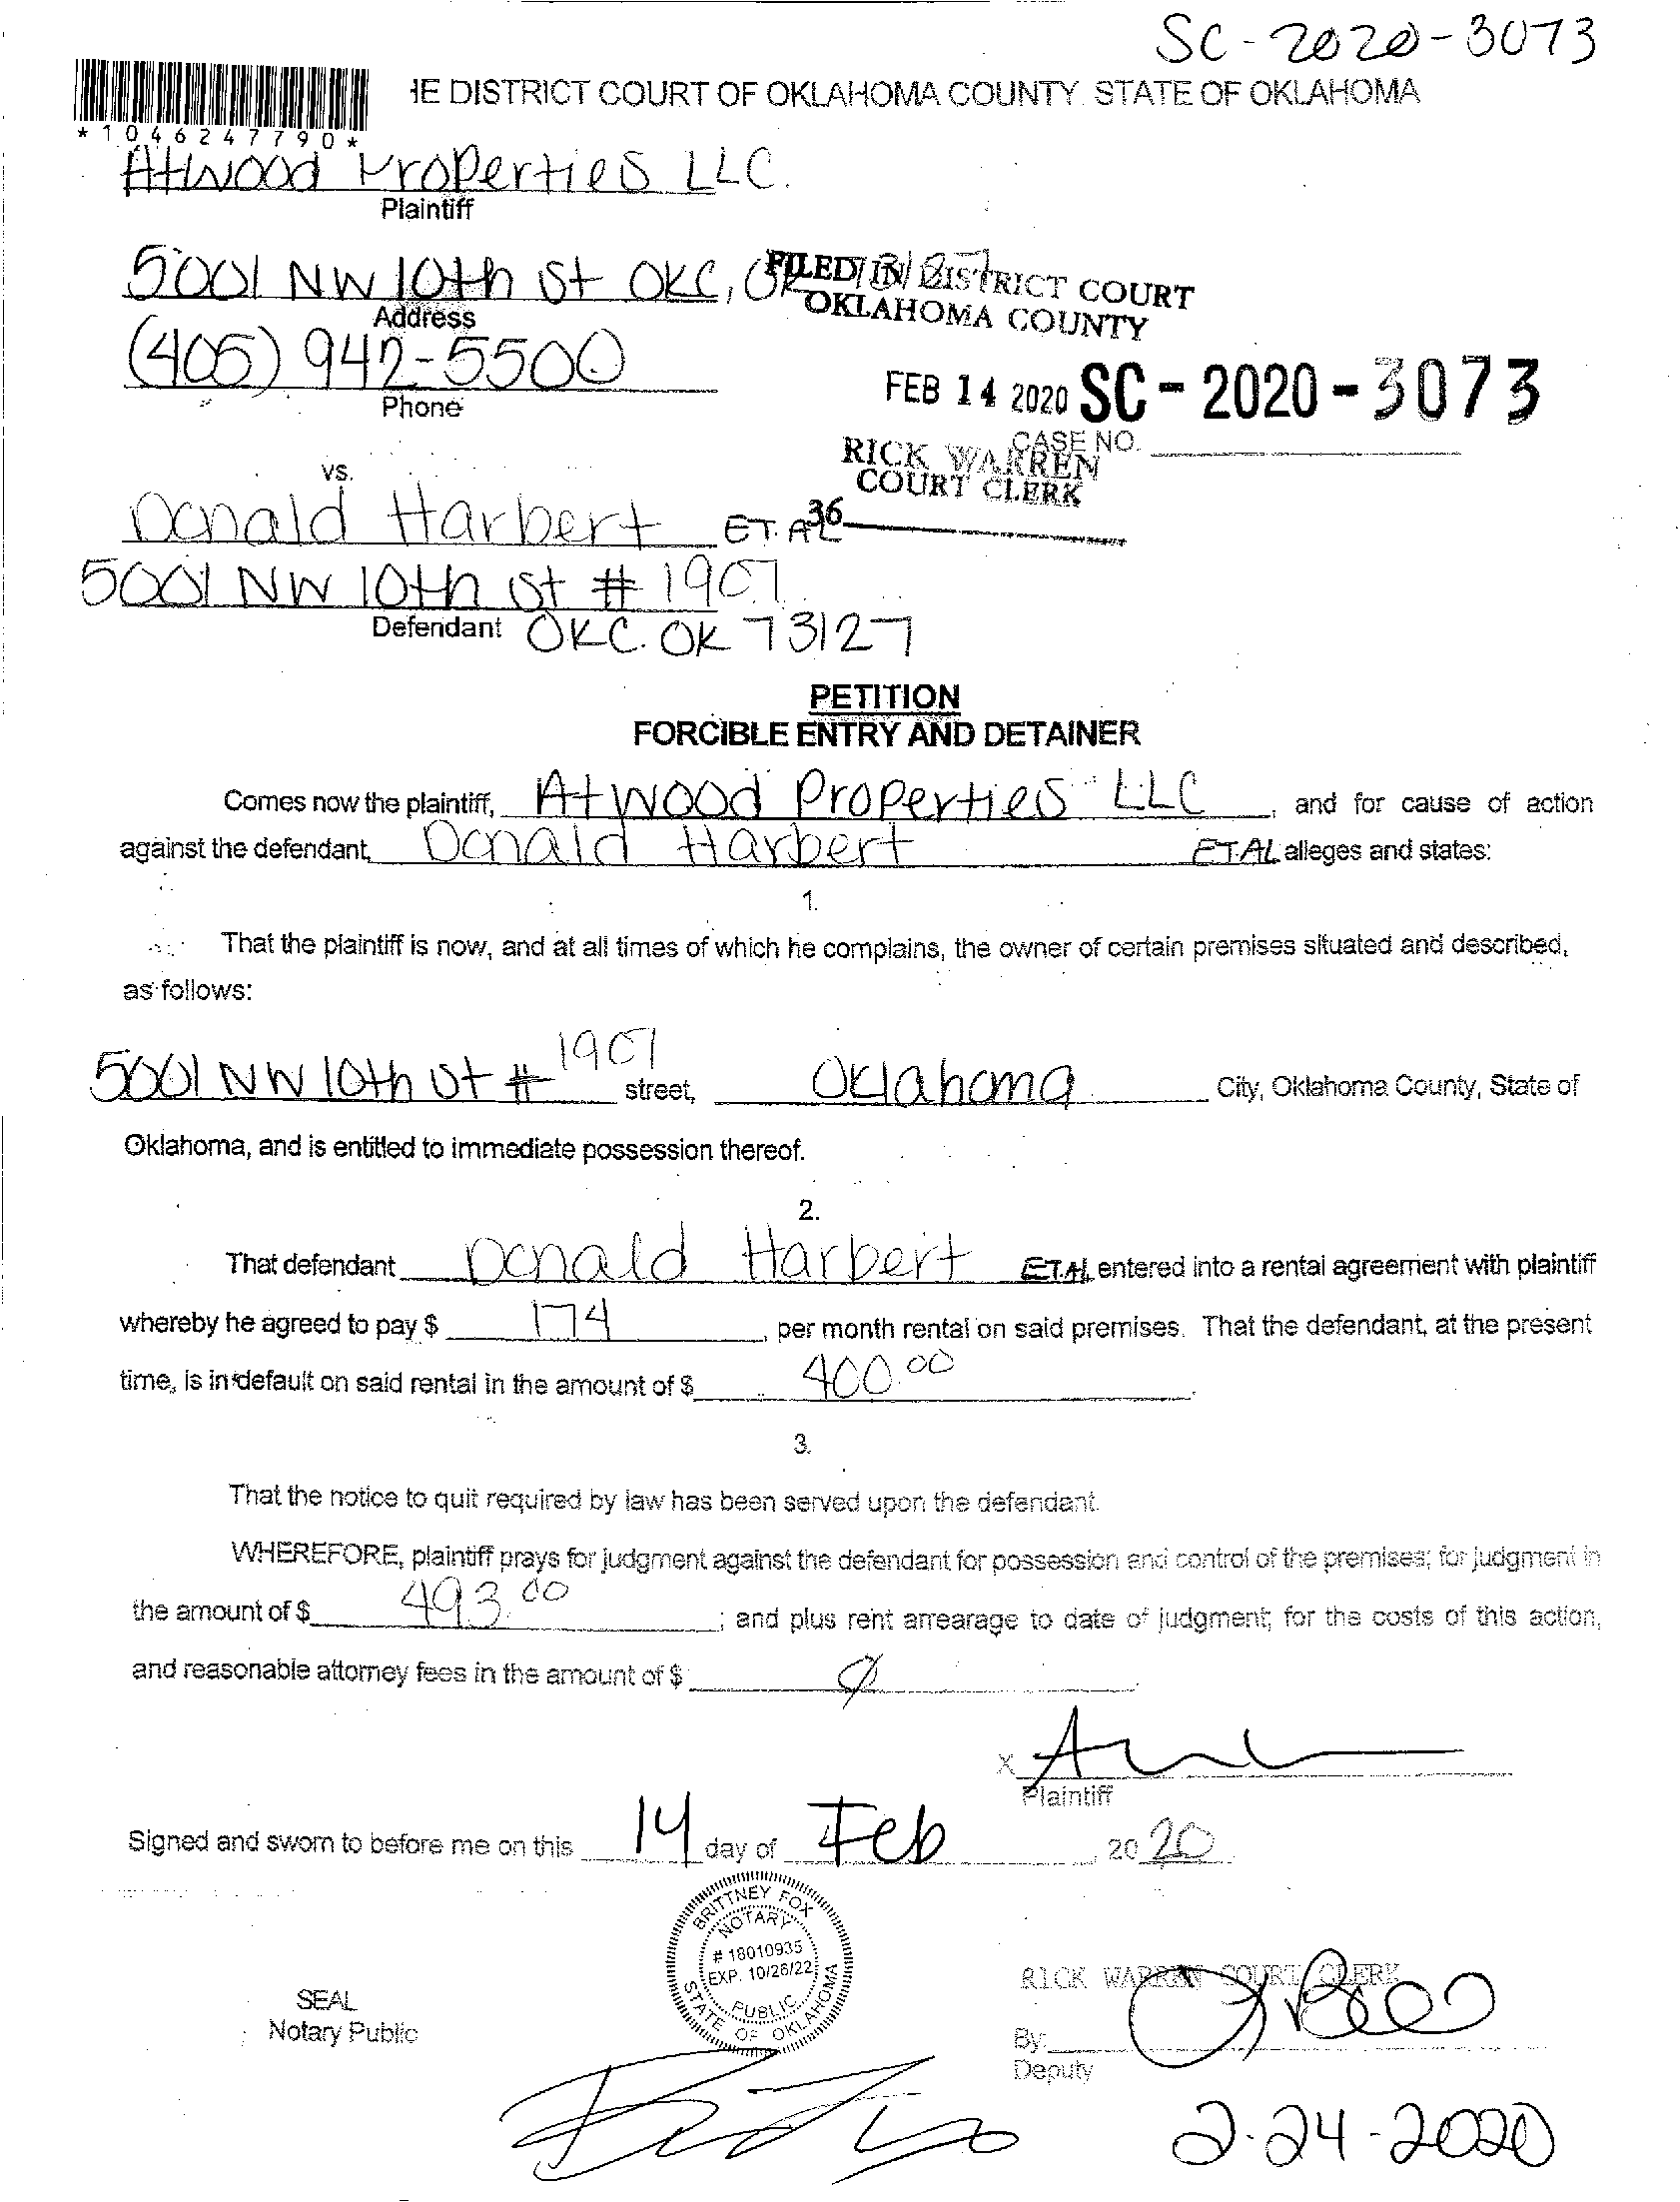 SC-2020-3073
HE DISTRICT COURT OF OKLAHOMA COUNTY STATE OF OKLAHOMA
*1046247790*
Atwood Properties LLC.
Plaintiff
5001 NW 10th St OKC, OK 73127
FILED IN DISTRICT COURT
OKLAHOMA COUNTY
Address
(405) 942-5500
Phone
FEB 14 2020 SC-2020-3073
CASE NO.
RICK WARREN
COURT CLERK
vs.
Donald Harbert ET. AL
36
5001 NW 10th St # 1907
Defendant OKC. OK 73127
PETITION
FORCIBLE ENTRY AND DETAINER
Comes now the plaintiff, Atwood Properties LLC, and for cause of action
against the defendant, Donald Harbert ET.AL alleges and states:
1.
That the plaintiff is now, and at all times of which he complains, the owner of certain premises situated and described,
as follows:
5001 NW 10th St # 1907 street, Oklahoma City, Oklahoma County, State of
Oklahoma, and is entitled to immediate possession thereof.
2.
That defendant Donald Harbert ET.AL entered into a rental agreement with plaintiff
whereby he agreed to pay $ 174, per month rental on said premises. That the defendant, at the present
time, is in default on said rental in the amount of $ 400.00.
3.
That the notice to quit required by law has been served upon the defendant.
WHEREFORE, plaintiff prays for judgment against the defendant for possession and control of the premises; for judgment in
the amount of $ 493.00; and plus rent arrearage to date of judgment; for the costs of this action,
and reasonable attorney fees in the amount of $ Ø.
X
Plaintiff
Signed and sworn to before me on this 14 day of Feb, 2020.
BRITTNEY FOX
NOTARY
# 18010935
EXP. 10/26/22
PUBLIC
STATE OF OKLAHOMA
SEAL
Notary Public
RICK WARREN COURT CLERK
By:
Deputy
2-24-2020